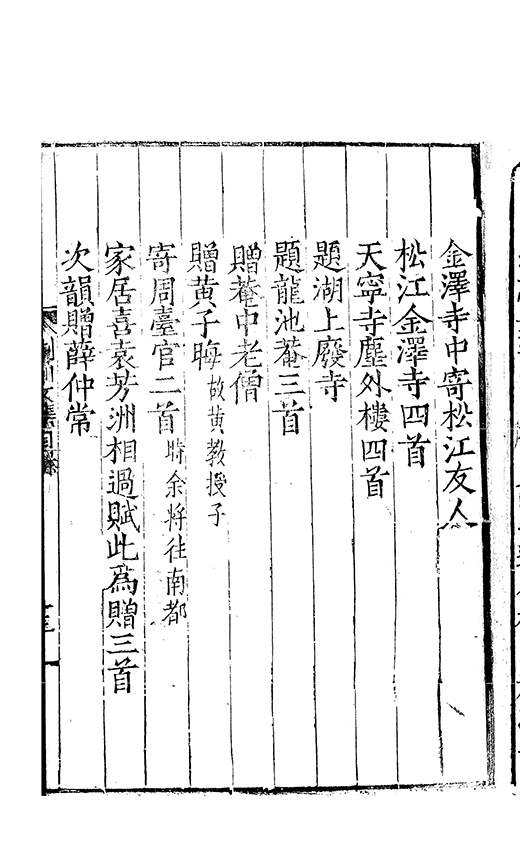 金澤寺中寄松江友人
松江金澤寺四首
天寧寺塵外樓四首
題湖上廢寺
題龍池菴三首
贈菴中老僧
贈黃子晦 故黃教授子
寄周臺官二首 時余將往南都
家居喜袁芳洲相過賦此為贈三首
次韻贈薛仲常